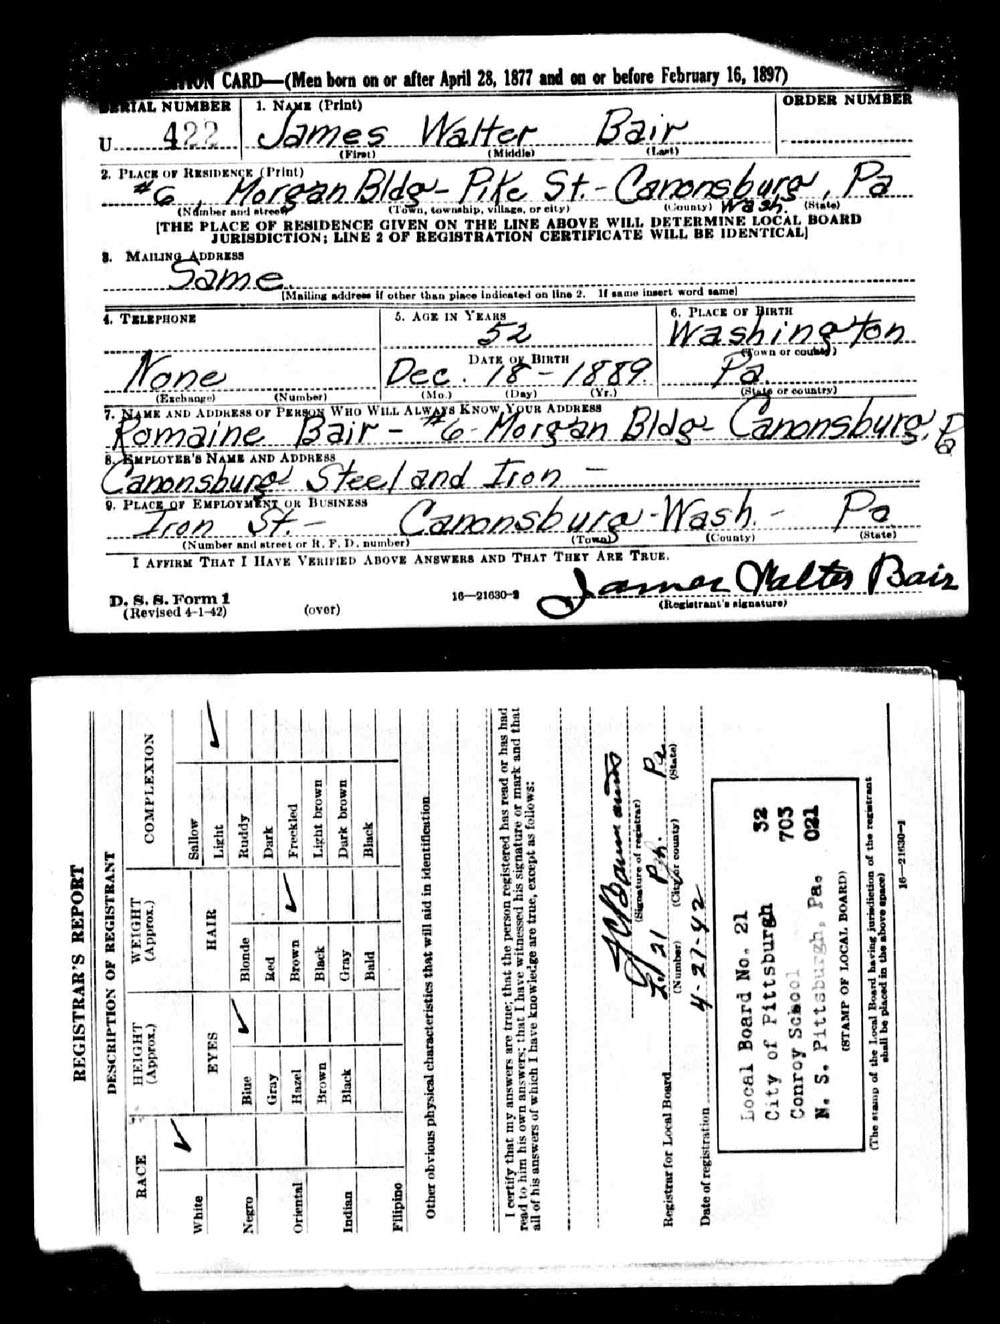 CARD—(Men born on or after April 28, 1877 and on or before February 16, 1897)
SERIAL NUMBER
1. NAME (Print)
ORDER NUMBER
U 422
James Walter Bair
(First) (Middle) (Last)
2. PLACE OF RESIDENCE (Print)
#6, Morgan Bldg - Pike St. - Canonsburg, Pa
Wash.
(Number and street) (Town, township, village, or city) (County) (State)
[THE PLACE OF RESIDENCE GIVEN ON THE LINE ABOVE WILL DETERMINE LOCAL BOARD
JURISDICTION; LINE 2 OF REGISTRATION CERTIFICATE WILL BE IDENTICAL]
3. MAILING ADDRESS
Same
[Mailing address if other than place indicated on line 2. If same insert word same]
4. TELEPHONE
None
(Exchange) (Number)
5. AGE IN YEARS
52
DATE OF BIRTH
Dec. 18 - 1889
(Mo.) (Day) (Yr.)
6. PLACE OF BIRTH
Washington
(Town or county)
Pa.
(State or country)
7. NAME AND ADDRESS OF PERSON WHO WILL ALWAYS KNOW YOUR ADDRESS
Romaine Bair - #6 - Morgan Bldg - Canonsburg, Pa
8. EMPLOYER'S NAME AND ADDRESS
Canonsburg Steel and Iron -
9. PLACE OF EMPLOYMENT OR BUSINESS
Iron St. - Canonsburg - Wash. - Pa
(Number and street or R. F. D. number) (Town) (County) (State)
I AFFIRM THAT I HAVE VERIFIED ABOVE ANSWERS AND THAT THEY ARE TRUE.
James Walter Bair
D. S. S. Form 1
(Revised 4-1-42)
(over)
16—21630-2
(Registrant's signature)
REGISTRAR'S REPORT
DESCRIPTION OF REGISTRANT
RACE
HEIGHT
(Approx.)
WEIGHT
(Approx.)
COMPLEXION
White ✓
Negro
Oriental
Indian
Filipino
EYES
Blue ✓
Gray
Hazel
Brown
Black
HAIR
Blonde
Red
Brown ✓
Black
Gray
Bald
Sallow
Light ✓
Ruddy
Dark
Freckled
Light brown
Dark brown
Black
Other obvious physical characteristics that will aid in identification
I certify that my answers are true; that the person registered has read or has had
read to him his own answers; that I have witnessed his signature or mark and that
all of his answers of which I have knowledge are true, except as follows:
(Signature of registrar)
Registrar for Local Board 21 Pgh. Pa.
(Number) (City or county) (State)
Date of registration 4-27-42
Local Board No. 21 32
City of Pittsburgh 703
Conroy School 021
N. S. Pittsburgh, Pa.
(STAMP OF LOCAL BOARD)
(The stamp of the Local Board having jurisdiction of the registrant
shall be placed in the above space)
16—21630-1